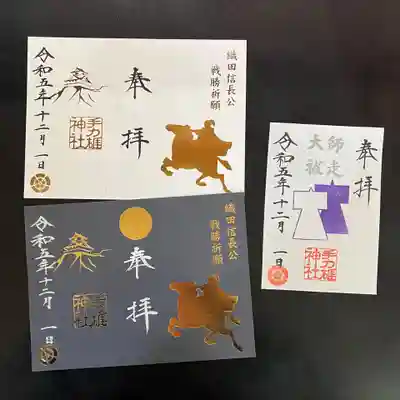 織田信長公
戦勝祈願
奉拝
手力雄
神社
令和五年十二月一日
織田信長公
戦勝祈願
奉拝
手力雄
神社
令和五年十二月一日
奉拝
師走
大祓
手力雄
神社
令和五年十二月一日